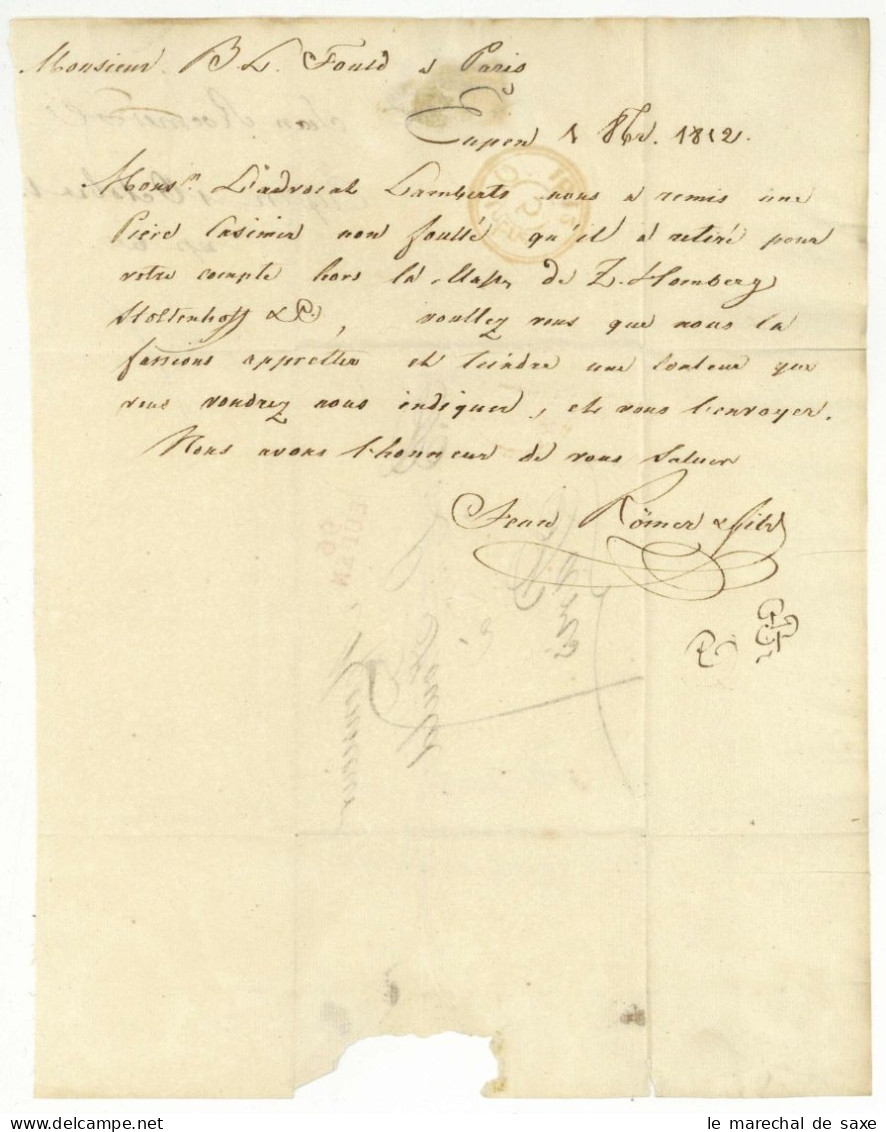 Monsieur B L. Fould à Paris
Eupen 1 8br. 1812.
Monsr. L'advocat Lamberts nous a remis une
Pièce Casimir non foullé qu'il a retiré pour
votre compte hors la Masse de Z. Homberg
Stoltenhoff & Co, voullez vous que nous la
fassions appretter et teindre une Couleur que
vous voudrez nous indiquer, et vous l'envoyer.
Nous avons l'honneur de vous Saluer
Jean Römer & fils
EUPEN
96
le marechal de saxe